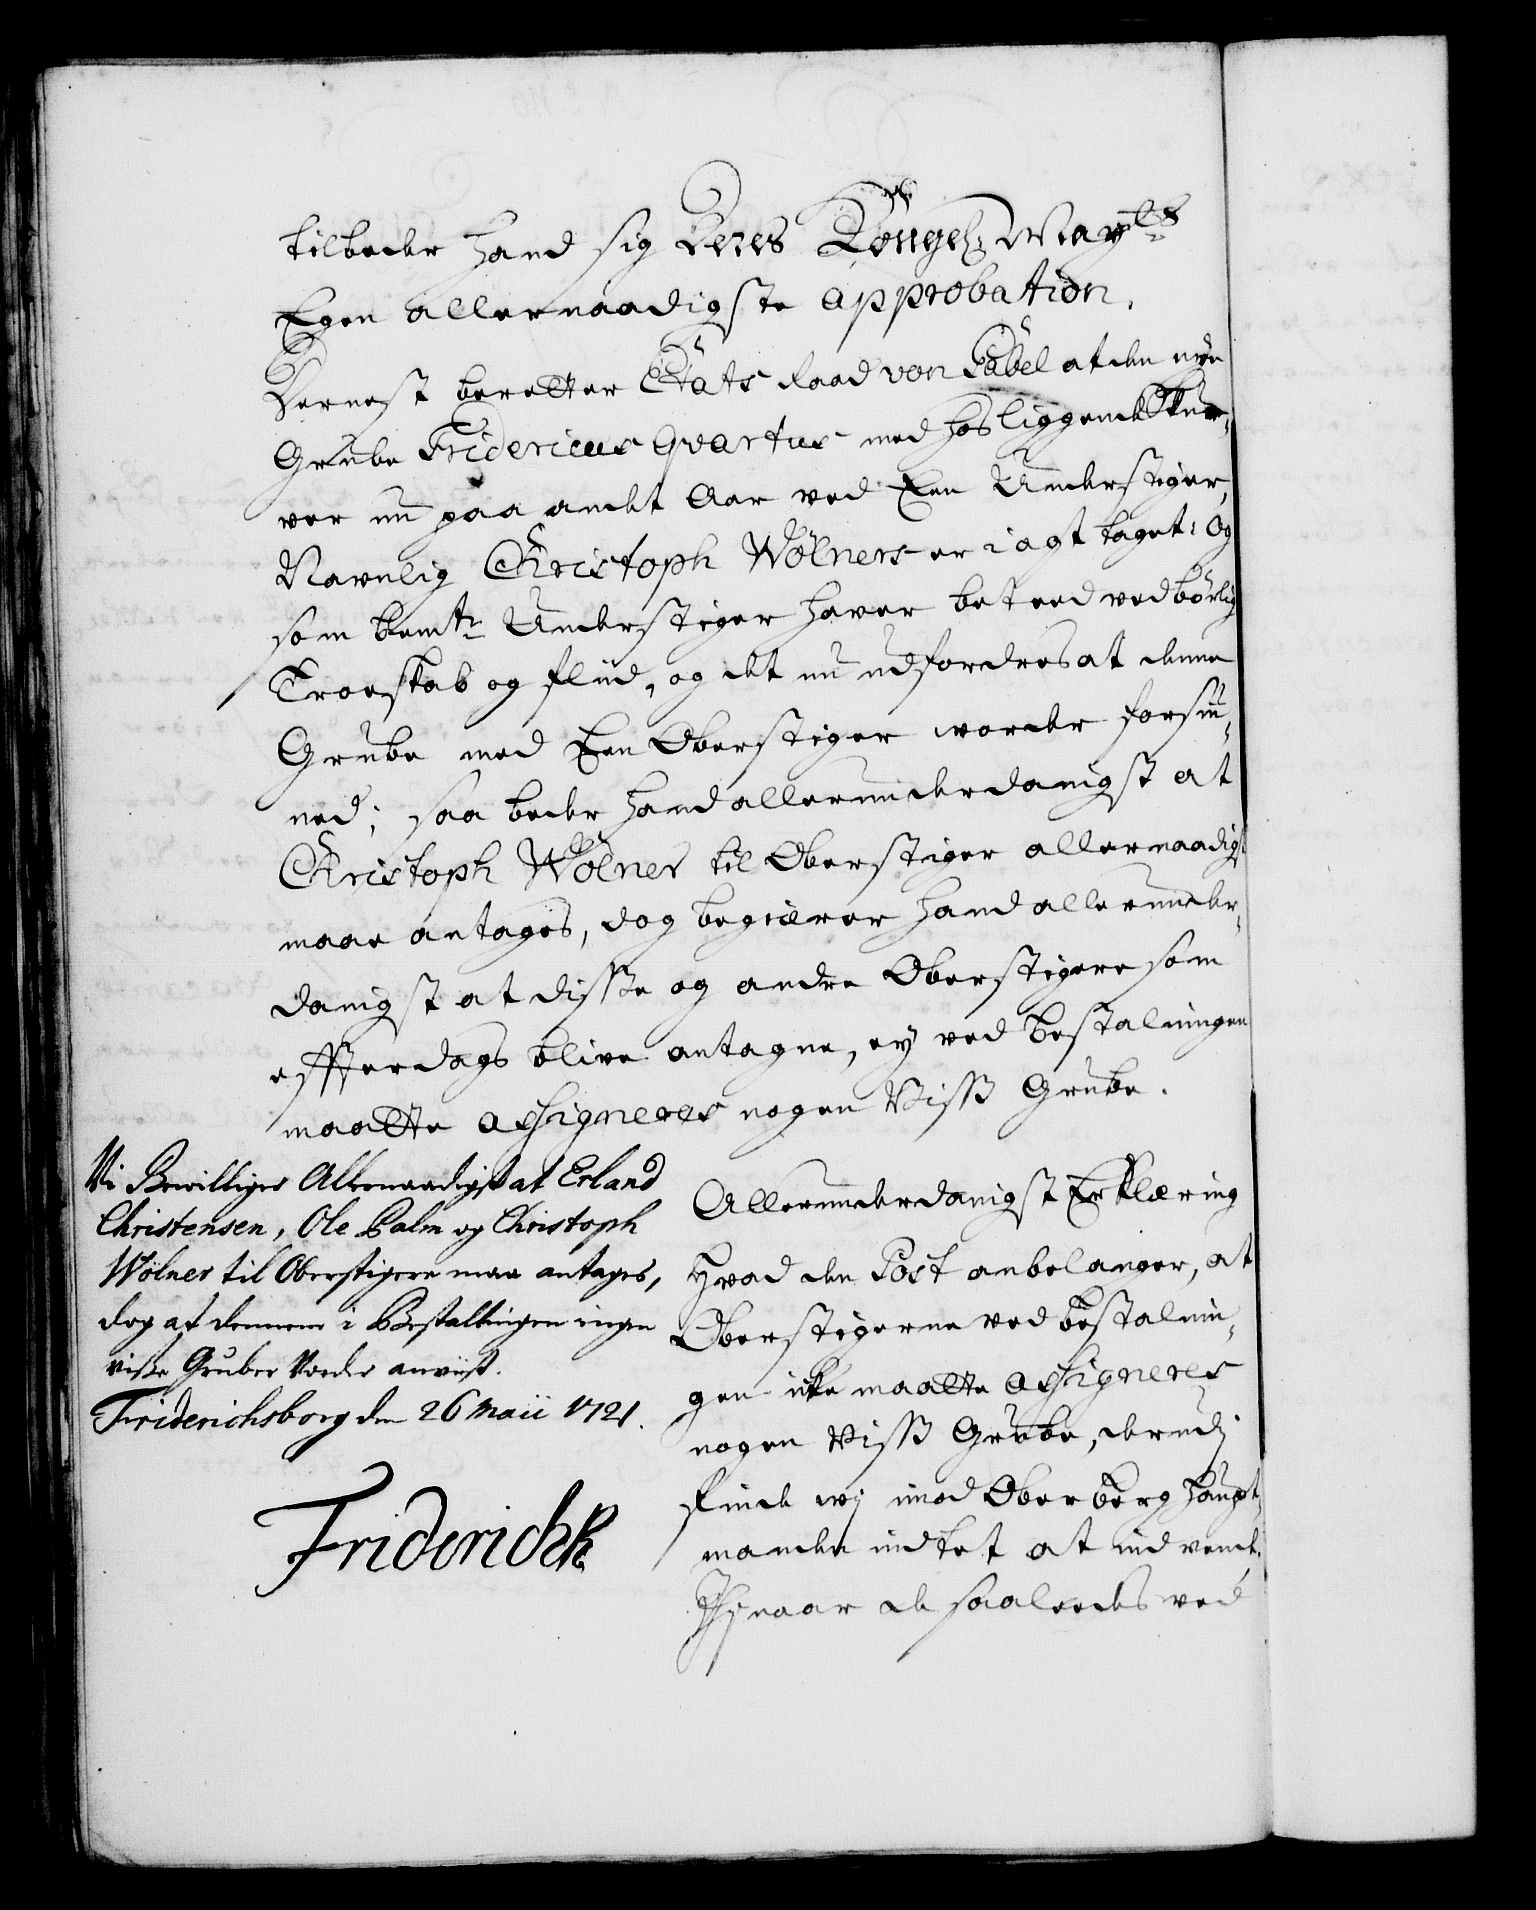 tilbeder hand sig Deres Kongel: May:ts
Egen allernaadigste approbation.
Dernest beretter Etats Raad von Pabel at den nye
Grube Fridericus Qvartus med hosliggende Skur-
ver nu paa andet Aar ved Een Understiger,
Navnlig Christoph Wölners er i agt taget: Og
som bem:te Understiger haver beteed ved börlig
Troeskab og fliid, og det nu udfordres at denne
Grube med Een Oberstiger worder forsiu-
ned; saa beder hand allerunderdanigst at
Christoph Wölner til Oberstiger allernaadigst
maae antages, dog begiærer hand allerunder-
danigst at disse og andre Oberstigere som
effterdags blive antagne, ey ved Bestalningen
maatte assigneres nogen Viss Grube.
Vi Bevilliger Allernaadigst at Erland
Christensen, Ole Palm og Christoph
Wölner til Oberstigere maa antages,
dog at dennem i Bestallingen ingen
visse Gruber Vorder anviist.
Friderichsborg den 26 Maii 1721.
Friderich R
Allerunderdanigst Erklæring
Hvad den Post anbelanger, at
Oberstigerne ved Bestalnin-
gen icke maatte assigneres
nogen Viss Grube, derudj
finde wj imod Ober berg haupt
manden indtet at indvende.
Thj naar de saaledes ved